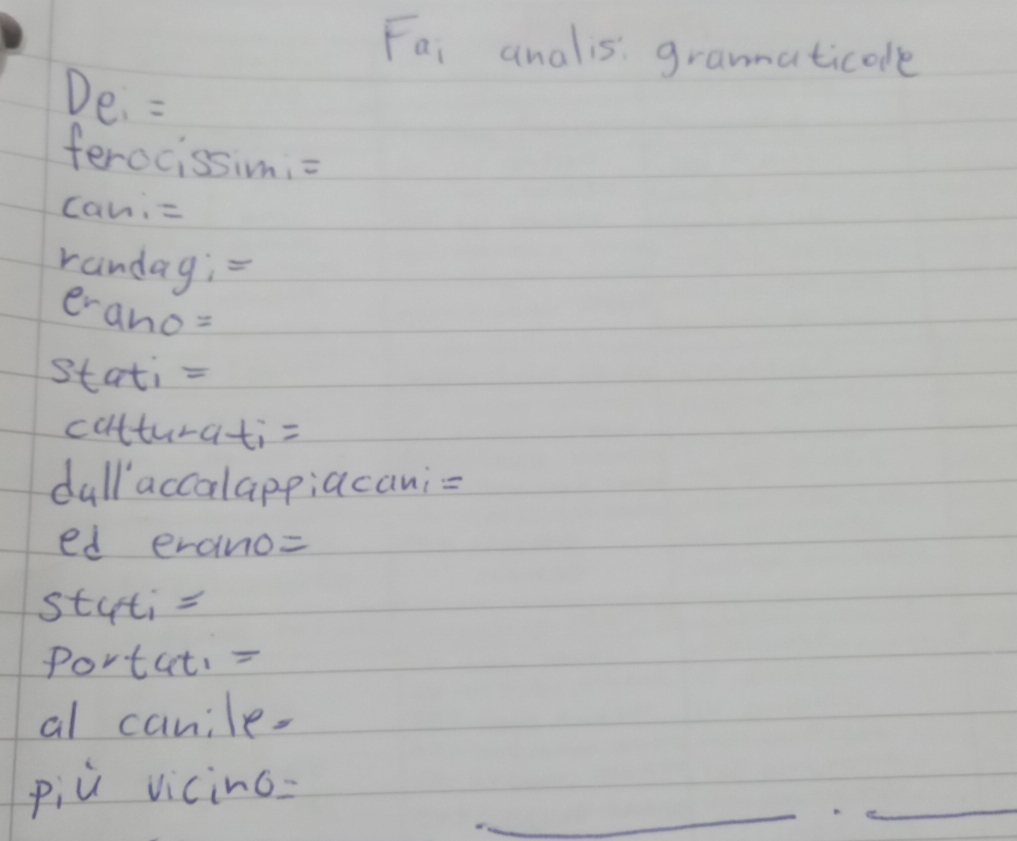 Fai analisi grammaticale
Dei =
ferocissimi =
cani =
randagi =
erano =
stati =
catturati =
dall'accalappiacani =
ed erano =
stati =
portati =
al canile =
più vicino =